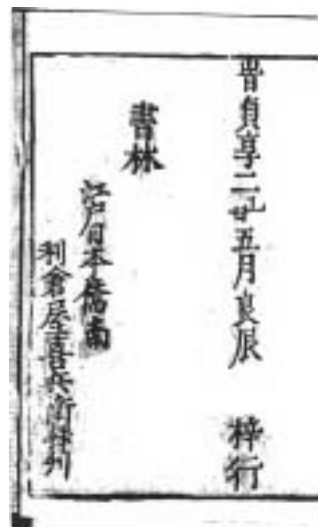 旹貞享二乙丑五月良辰 梓行
書林
江戸日本橋南
利倉屋喜兵衛